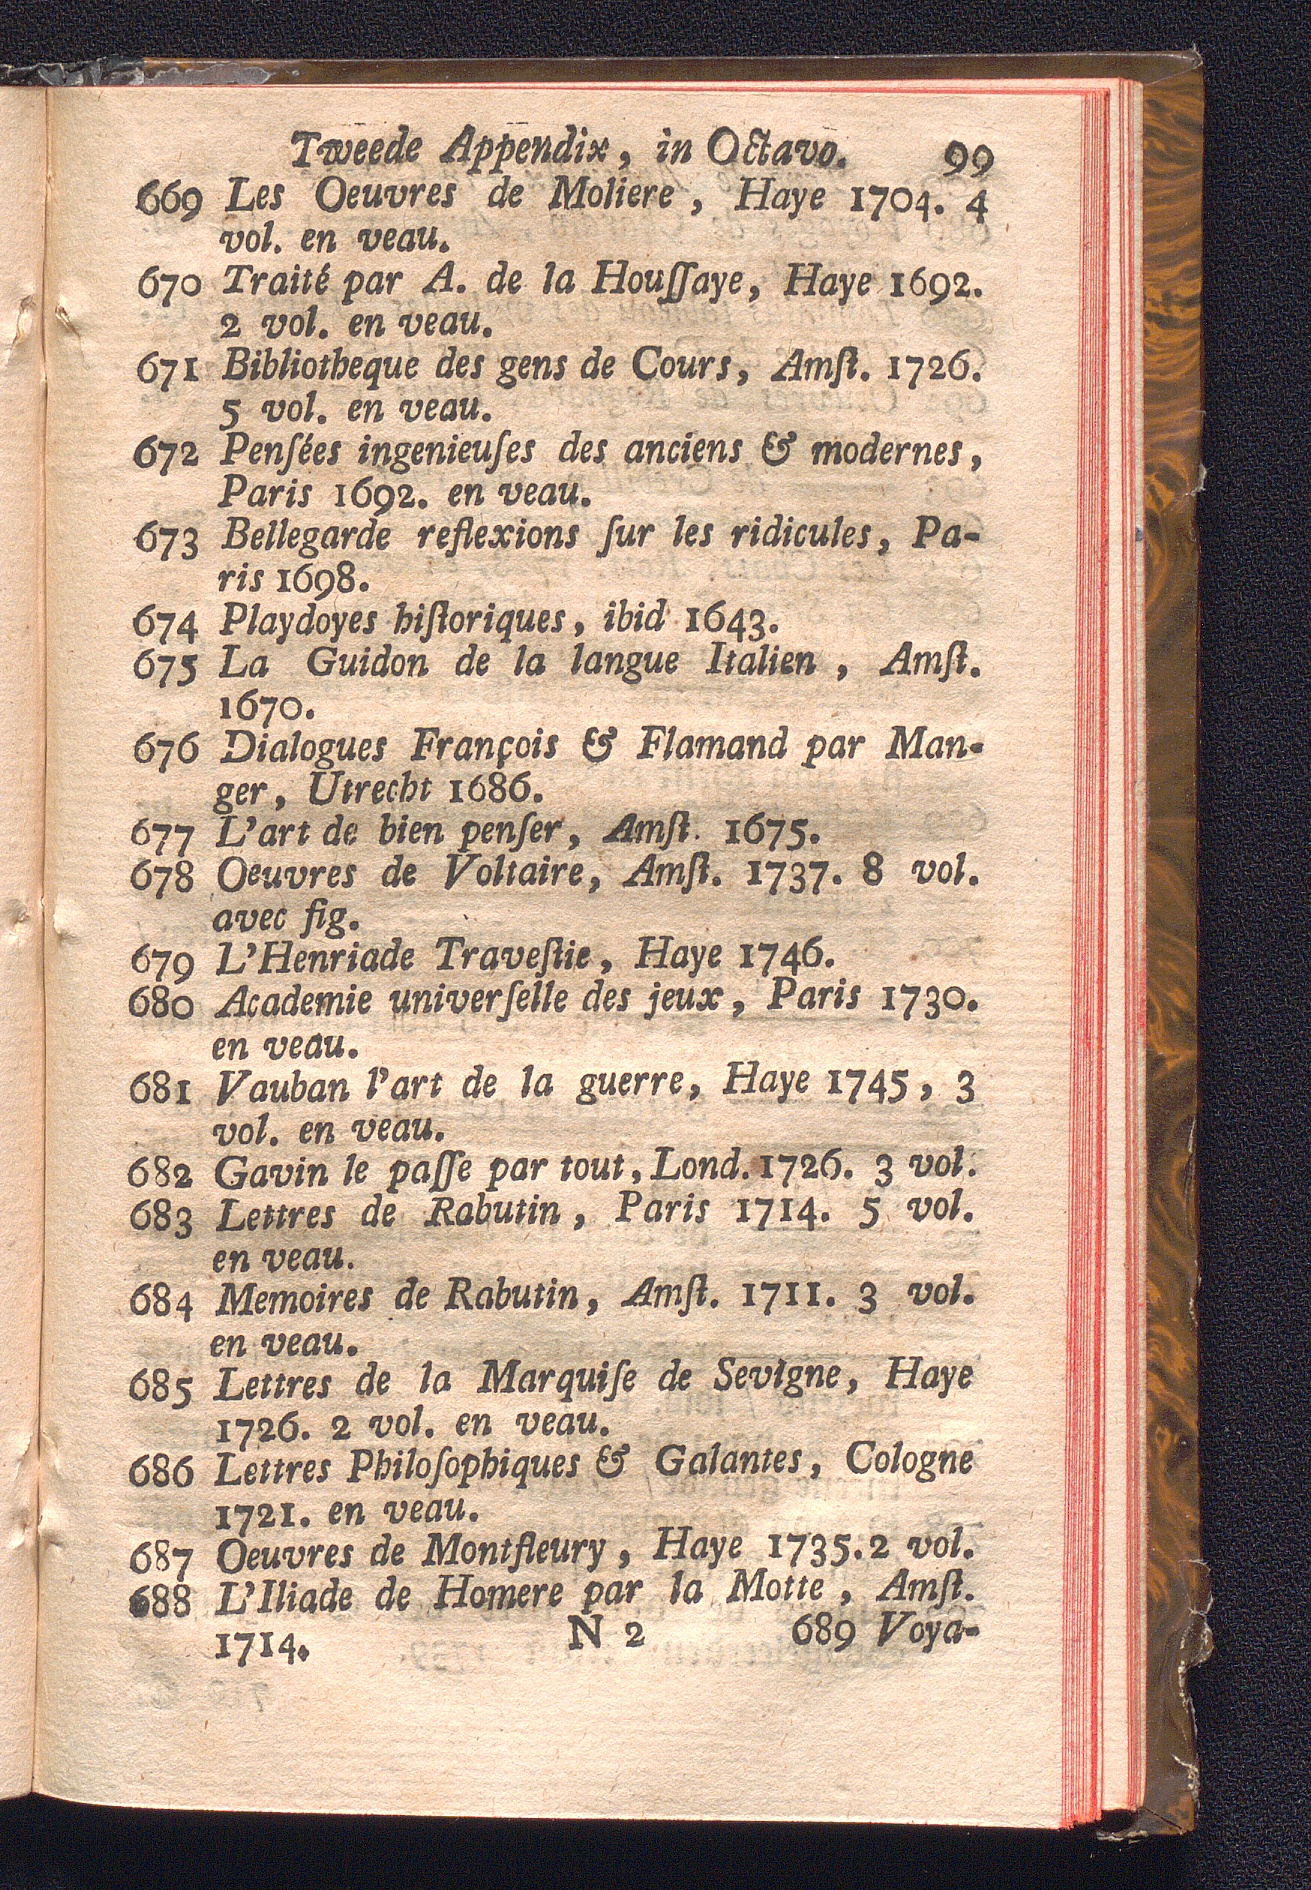 Tweede Appendix, in Octavo. 99
669 Les Oeuvres de Moliere, Haye 1704. 4
vol. en veau.
670 Traité par A. de la Houſſaye, Haye 1692.
2 vol. en veau.
671 Bibliotheque des gens de Cours, Amſt. 1726.
5 vol. en veau.
672 Penſées ingenieuſes des anciens & modernes,
Paris 1692. en veau.
673 Bellegarde reflexions ſur les ridicules, Pa-
ris 1698.
674 Playdoyes hiſtoriques, ibid 1643.
675 La Guidon de la langue Italien, Amſt.
1670.
676 Dialogues François & Flamand par Man-
ger, Utrecht 1686.
677 L'art de bien penſer, Amſt. 1675.
678 Oeuvres de Voltaire, Amſt. 1737. 8 vol.
avec fig.
679 L'Henriade Traveſtie, Haye 1746.
680 Academie univerſelle des jeux, Paris 1730.
en veau.
681 Vauban l'art de la guerre, Haye 1745, 3
vol. en veau.
682 Gavin le paſſe par tout, Lond. 1726. 3 vol.
683 Lettres de Rabutin, Paris 1714. 5 vol.
en veau.
684 Memoires de Rabutin, Amſt. 1711. 3 vol.
en veau.
685 Lettres de la Marquiſe de Sevigne, Haye
1726. 2 vol. en veau.
686 Lettres Philoſophiques & Galantes, Cologne
1721. en veau.
687 Oeuvres de Montfleury, Haye 1735. 2 vol.
688 L'Iliade de Homere par la Motte, Amſt.
1714. N 2 689 Voya-